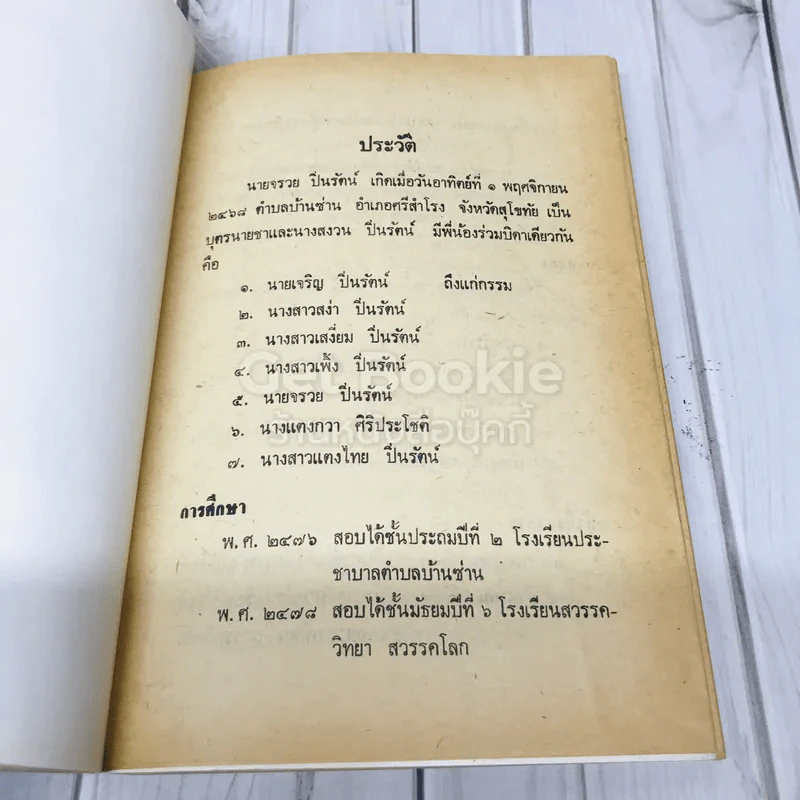 ประวัติ
นายจรวย ปิ่นรัตน์ เกิดเมื่อวันอาทิตย์ที่ ๑ พฤศจิกายน
๒๔๖๘ ตำบลบ้านซ่าน อำเภอศรีสำโรง จังหวัดสุโขทัย เป็น
บุตรนายชาและนางสงวน ปิ่นรัตน์ มีพี่น้องร่วมบิดาเดียวกัน
คือ
๑. นายเจริญ ปิ่นรัตน์ ถึงแก่กรรม
๒. นางสาวสง่า ปิ่นรัตน์
๓. นางสาวเสงี่ยม ปิ่นรัตน์
๔. นางสาวเพิ้ง ปิ่นรัตน์
Get Bookie
๕. นายจรวย ปิ่นรัตน์
๖. นางแตงกวา ศิริประโชติ
ร้านหนังสือบุ๊คกี้
๗. นางสาวแตงไทย ปิ่นรัตน์
การศึกษา
พ.ศ. ๒๔๗๖ สอบได้ชั้นประถมปีที่ ๒ โรงเรียนประ-
ชาบาลตำบลบ้านซ่าน
พ.ศ. ๒๔๗๘ สอบได้ชั้นมัธยมปีที่ ๖ โรงเรียนสวรรค-
วิทยา สวรรคโลก